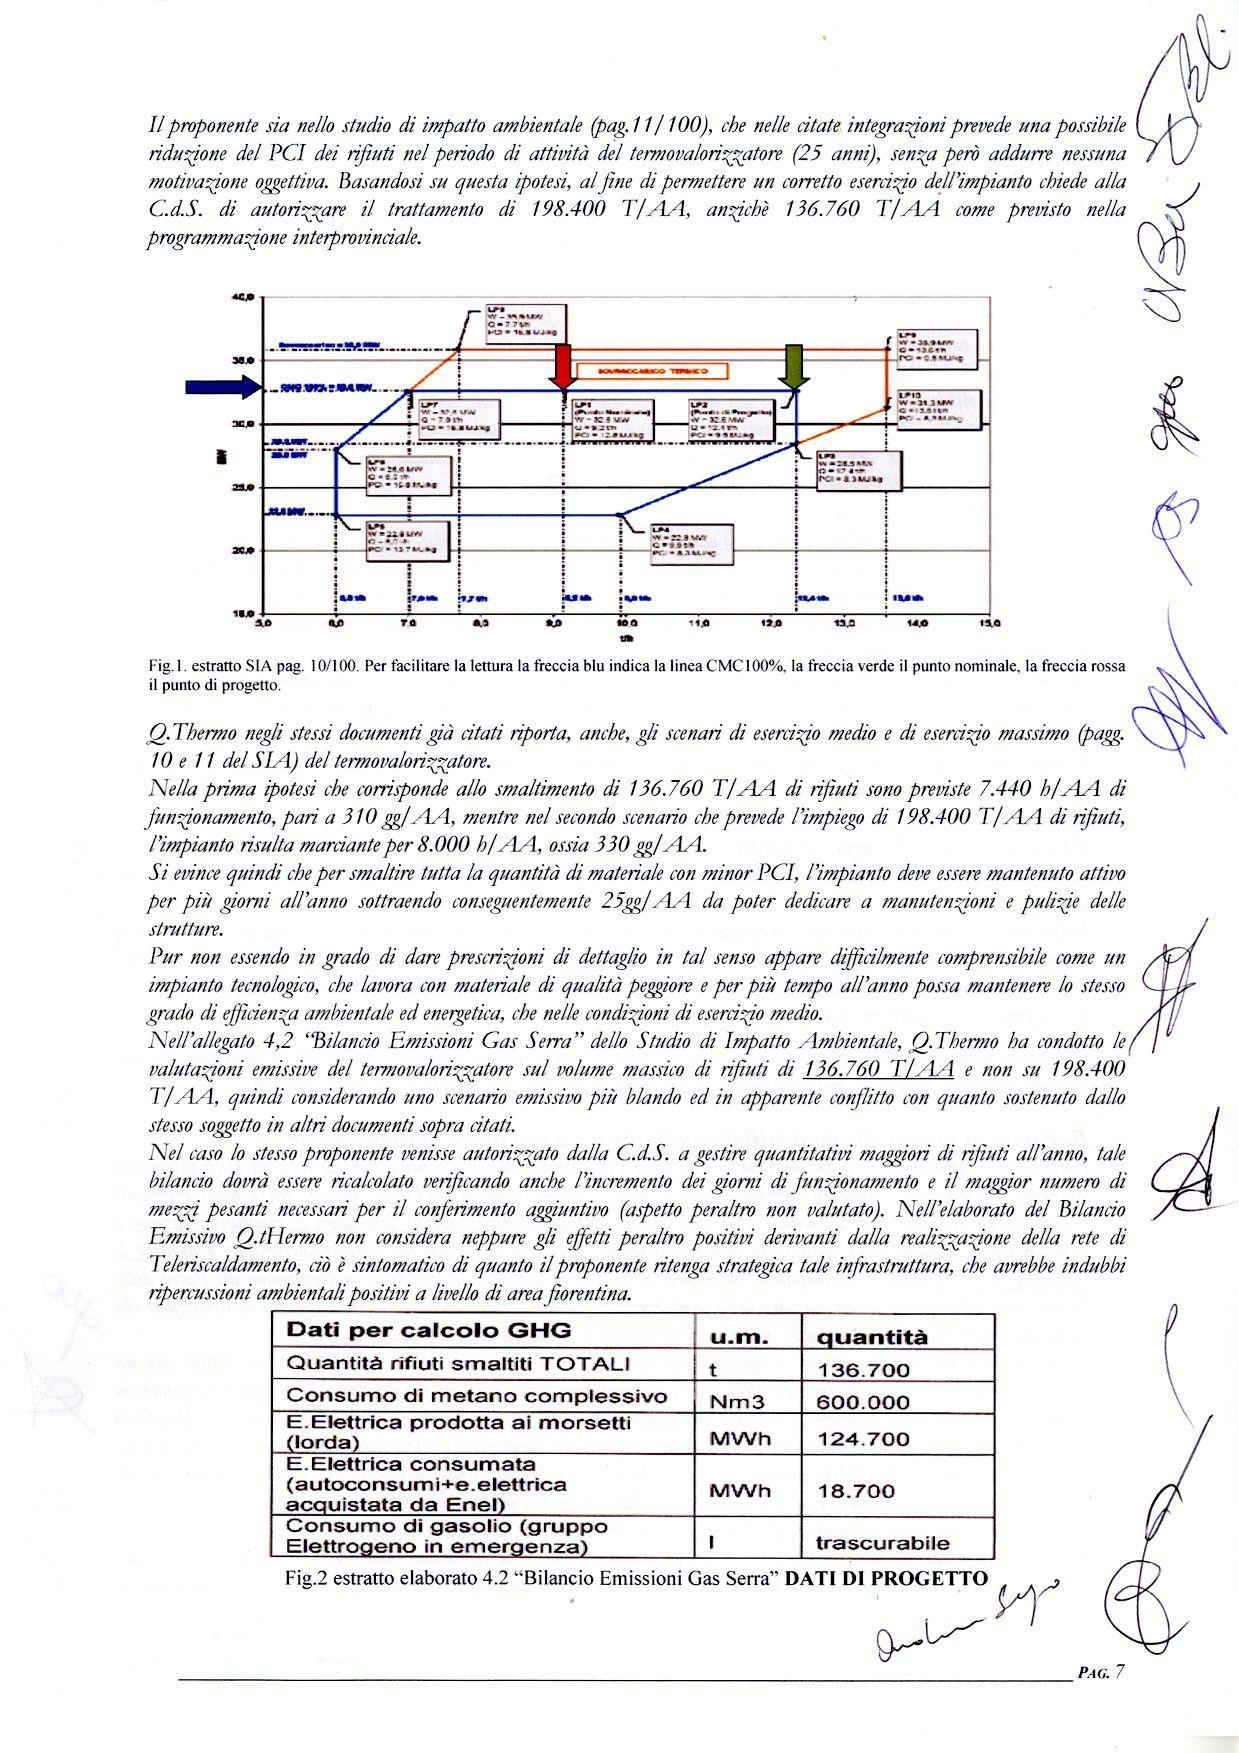 Il proponente sia nello studio di impatto ambientale (pag.11/100), che nelle citate integrazioni prevede una possibile
riduzione del PCI dei rifiuti nel periodo di attività del termovalorizzatore (25 anni), senza però addurre nessuna
motivazione oggettiva. Basandosi su questa ipotesi, al fine di permettere un corretto esercizio dell'impianto chiede alla
C.d.S. di autorizzare il trattamento di 198.400 T/AA, anzichè 136.760 T/AA come previsto nella
programmazione interprovinciale.
40,0
35,0
30,0
25,0
20,0
15,0
SOVRACCARICO TERMICO
LP7
LP1
(Punto Nominale)
LP2
(Punto di Progetto)
LP10
LP3
LP5
LP4
5,0 6,0 7,0 8,0 9,0 10,0 11,0 12,0 13,0 14,0 15,0
t/h
Fig.1. estratto SIA pag. 10/100. Per facilitare la lettura la freccia blu indica la linea CMC100%, la freccia verde il punto nominale, la freccia rossa
il punto di progetto.
Q.Thermo negli stessi documenti già citati riporta, anche, gli scenari di esercizio medio e di esercizio massimo (pagg.
10 e 11 del SIA) del termovalorizzatore.
Nella prima ipotesi che corrisponde allo smaltimento di 136.760 T/AA di rifiuti sono previste 7.440 h/AA di
funzionamento, pari a 310 gg/AA, mentre nel secondo scenario che prevede l'impiego di 198.400 T/AA di rifiuti,
l'impianto risulta marciante per 8.000 h/AA, ossia 330 gg/AA.
Si evince quindi che per smaltire tutta la quantità di materiale con minor PCI, l'impianto deve essere mantenuto attivo
per più giorni all'anno sottraendo conseguentemente 25gg/AA da poter dedicare a manutenzioni e pulizie delle
strutture.
Pur non essendo in grado di dare prescrizioni di dettaglio in tal senso appare difficilmente comprensibile come un
impianto tecnologico, che lavora con materiale di qualità peggiore e per più tempo all'anno possa mantenere lo stesso
grado di efficienza ambientale ed energetica, che nelle condizioni di esercizio medio.
Nell'allegato 4,2 “Bilancio Emissioni Gas Serra” dello Studio di Impatto Ambientale, Q.Thermo ha condotto le
valutazioni emissive del termovalorizzatore sul volume massico di rifiuti di 136.760 T/AA e non su 198.400
T/AA, quindi considerando uno scenario emissivo più blando ed in apparente conflitto con quanto sostenuto dallo
stesso soggetto in altri documenti sopra citati.
Nel caso lo stesso proponente venisse autorizzato dalla C.d.S. a gestire quantitativi maggiori di rifiuti all'anno, tale
bilancio dovrà essere ricalcolato verificando anche l'incremento dei giorni di funzionamento e il maggior numero di
mezzi pesanti necessari per il conferimento aggiuntivo (aspetto peraltro non valutato). Nell'elaborato del Bilancio
Emissivo Q.tHermo non considera neppure gli effetti peraltro positivi derivanti dalla realizzazione della rete di
Teleriscaldamento, ciò è sintomatico di quanto il proponente ritenga strategica tale infrastruttura, che avrebbe indubbi
ripercussioni ambientali positivi a livello di area fiorentina.
Dati per calcolo GHG u.m. quantità
Quantità rifiuti smaltiti TOTALI t 136.700
Consumo di metano complessivo Nm3 600.000
E.Elettrica prodotta ai morsetti
(lorda) MWh 124.700
E.Elettrica consumata
(autoconsumi+e.elettrica MWh 18.700
acquistata da Enel)
Consumo di gasolio (gruppo
Elettrogeno in emergenza) l trascurabile
Fig.2 estratto elaborato 4.2 “Bilancio Emissioni Gas Serra” DATI DI PROGETTO
PAG. 7